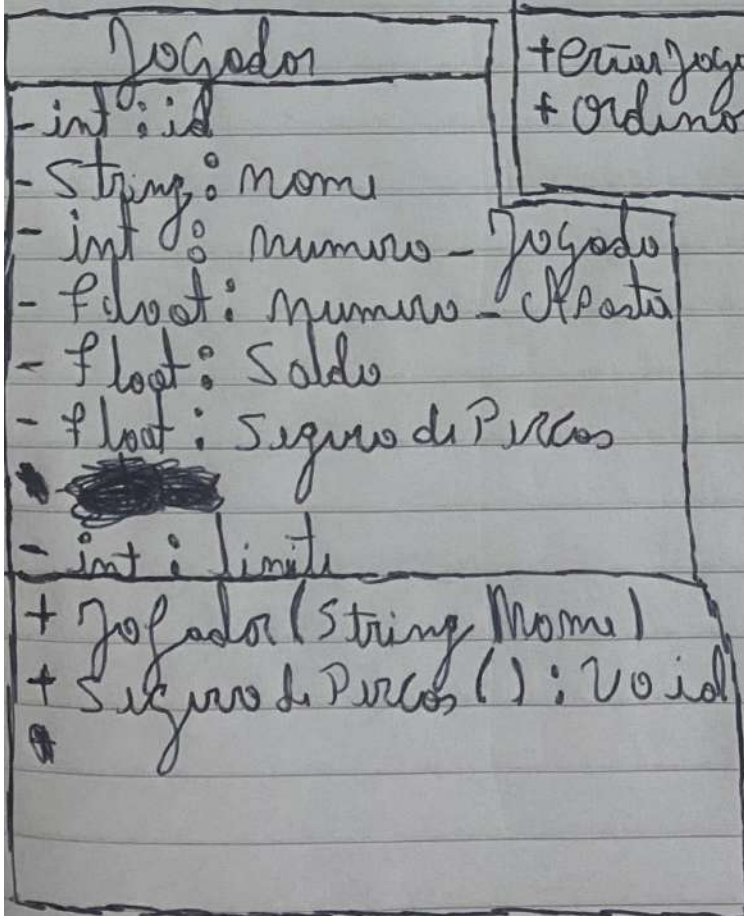 Jogador
- int : id
- String : nome
- int : numero_Jogado
- float : numero_Aposta
- float : Saldo
- float : Seguro de Percas
- int : limite
+ Jogador (String Nome)
+ Seguro de Percas () : Void
+ criarJoga
+ Ordena